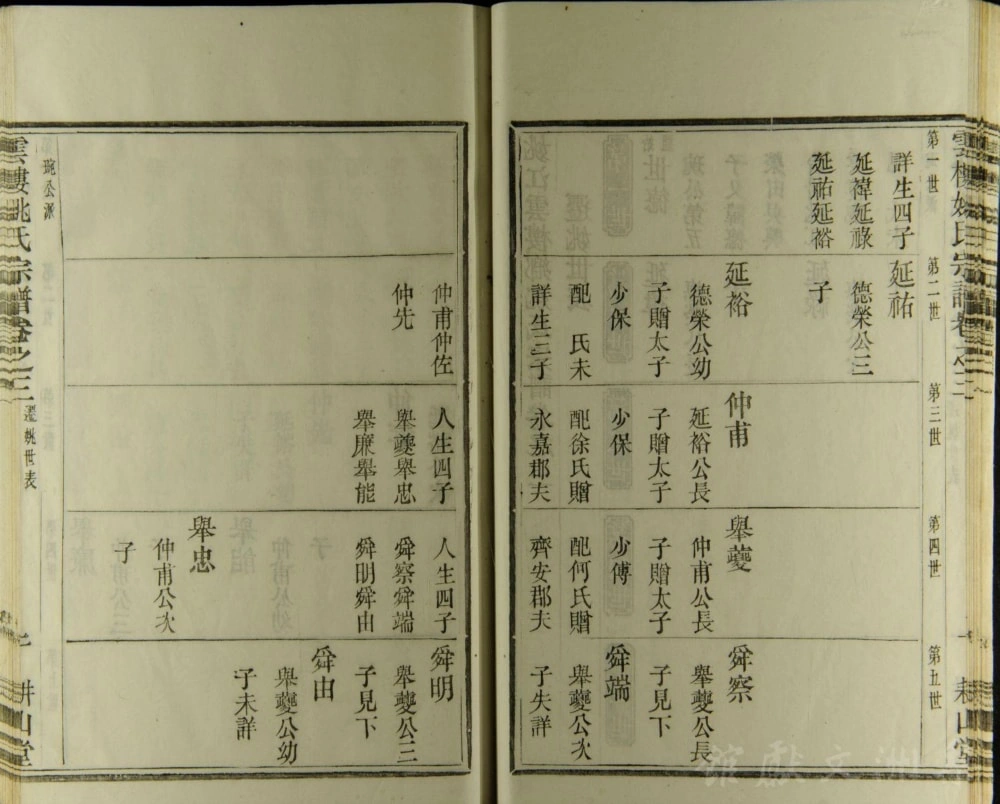 雲樓姚氏宗譜卷之三
耕山堂
第一世
詳生四子
延禕延祿
延祐延裕
第二世
延祐
德榮公三
子
延裕
德榮公幼
子贈太子
少保
配 氏未
詳生三子
第三世
仲甫
延裕公長
子贈太子
少保
配徐氏贈
永嘉郡夫
第四世
舉夔
仲甫公長
子贈太子
少傅
配何氏贈
齊安郡夫
第五世
舜察
舉夔公長
子見下
舜端
舉夔公次
子失詳
仲甫仲佐
仲先
人生四子
舉夔舉忠
舉廉舉能
人生四子
舜察舜端
舜明舜由
舉忠
仲甫公次
子
舜明
舉夔公三
子見下
舜由
舉夔公幼
子未詳
琬公派
雲樓姚氏宗譜卷之三
遷姚世表
七
耕山堂
洲文獻館